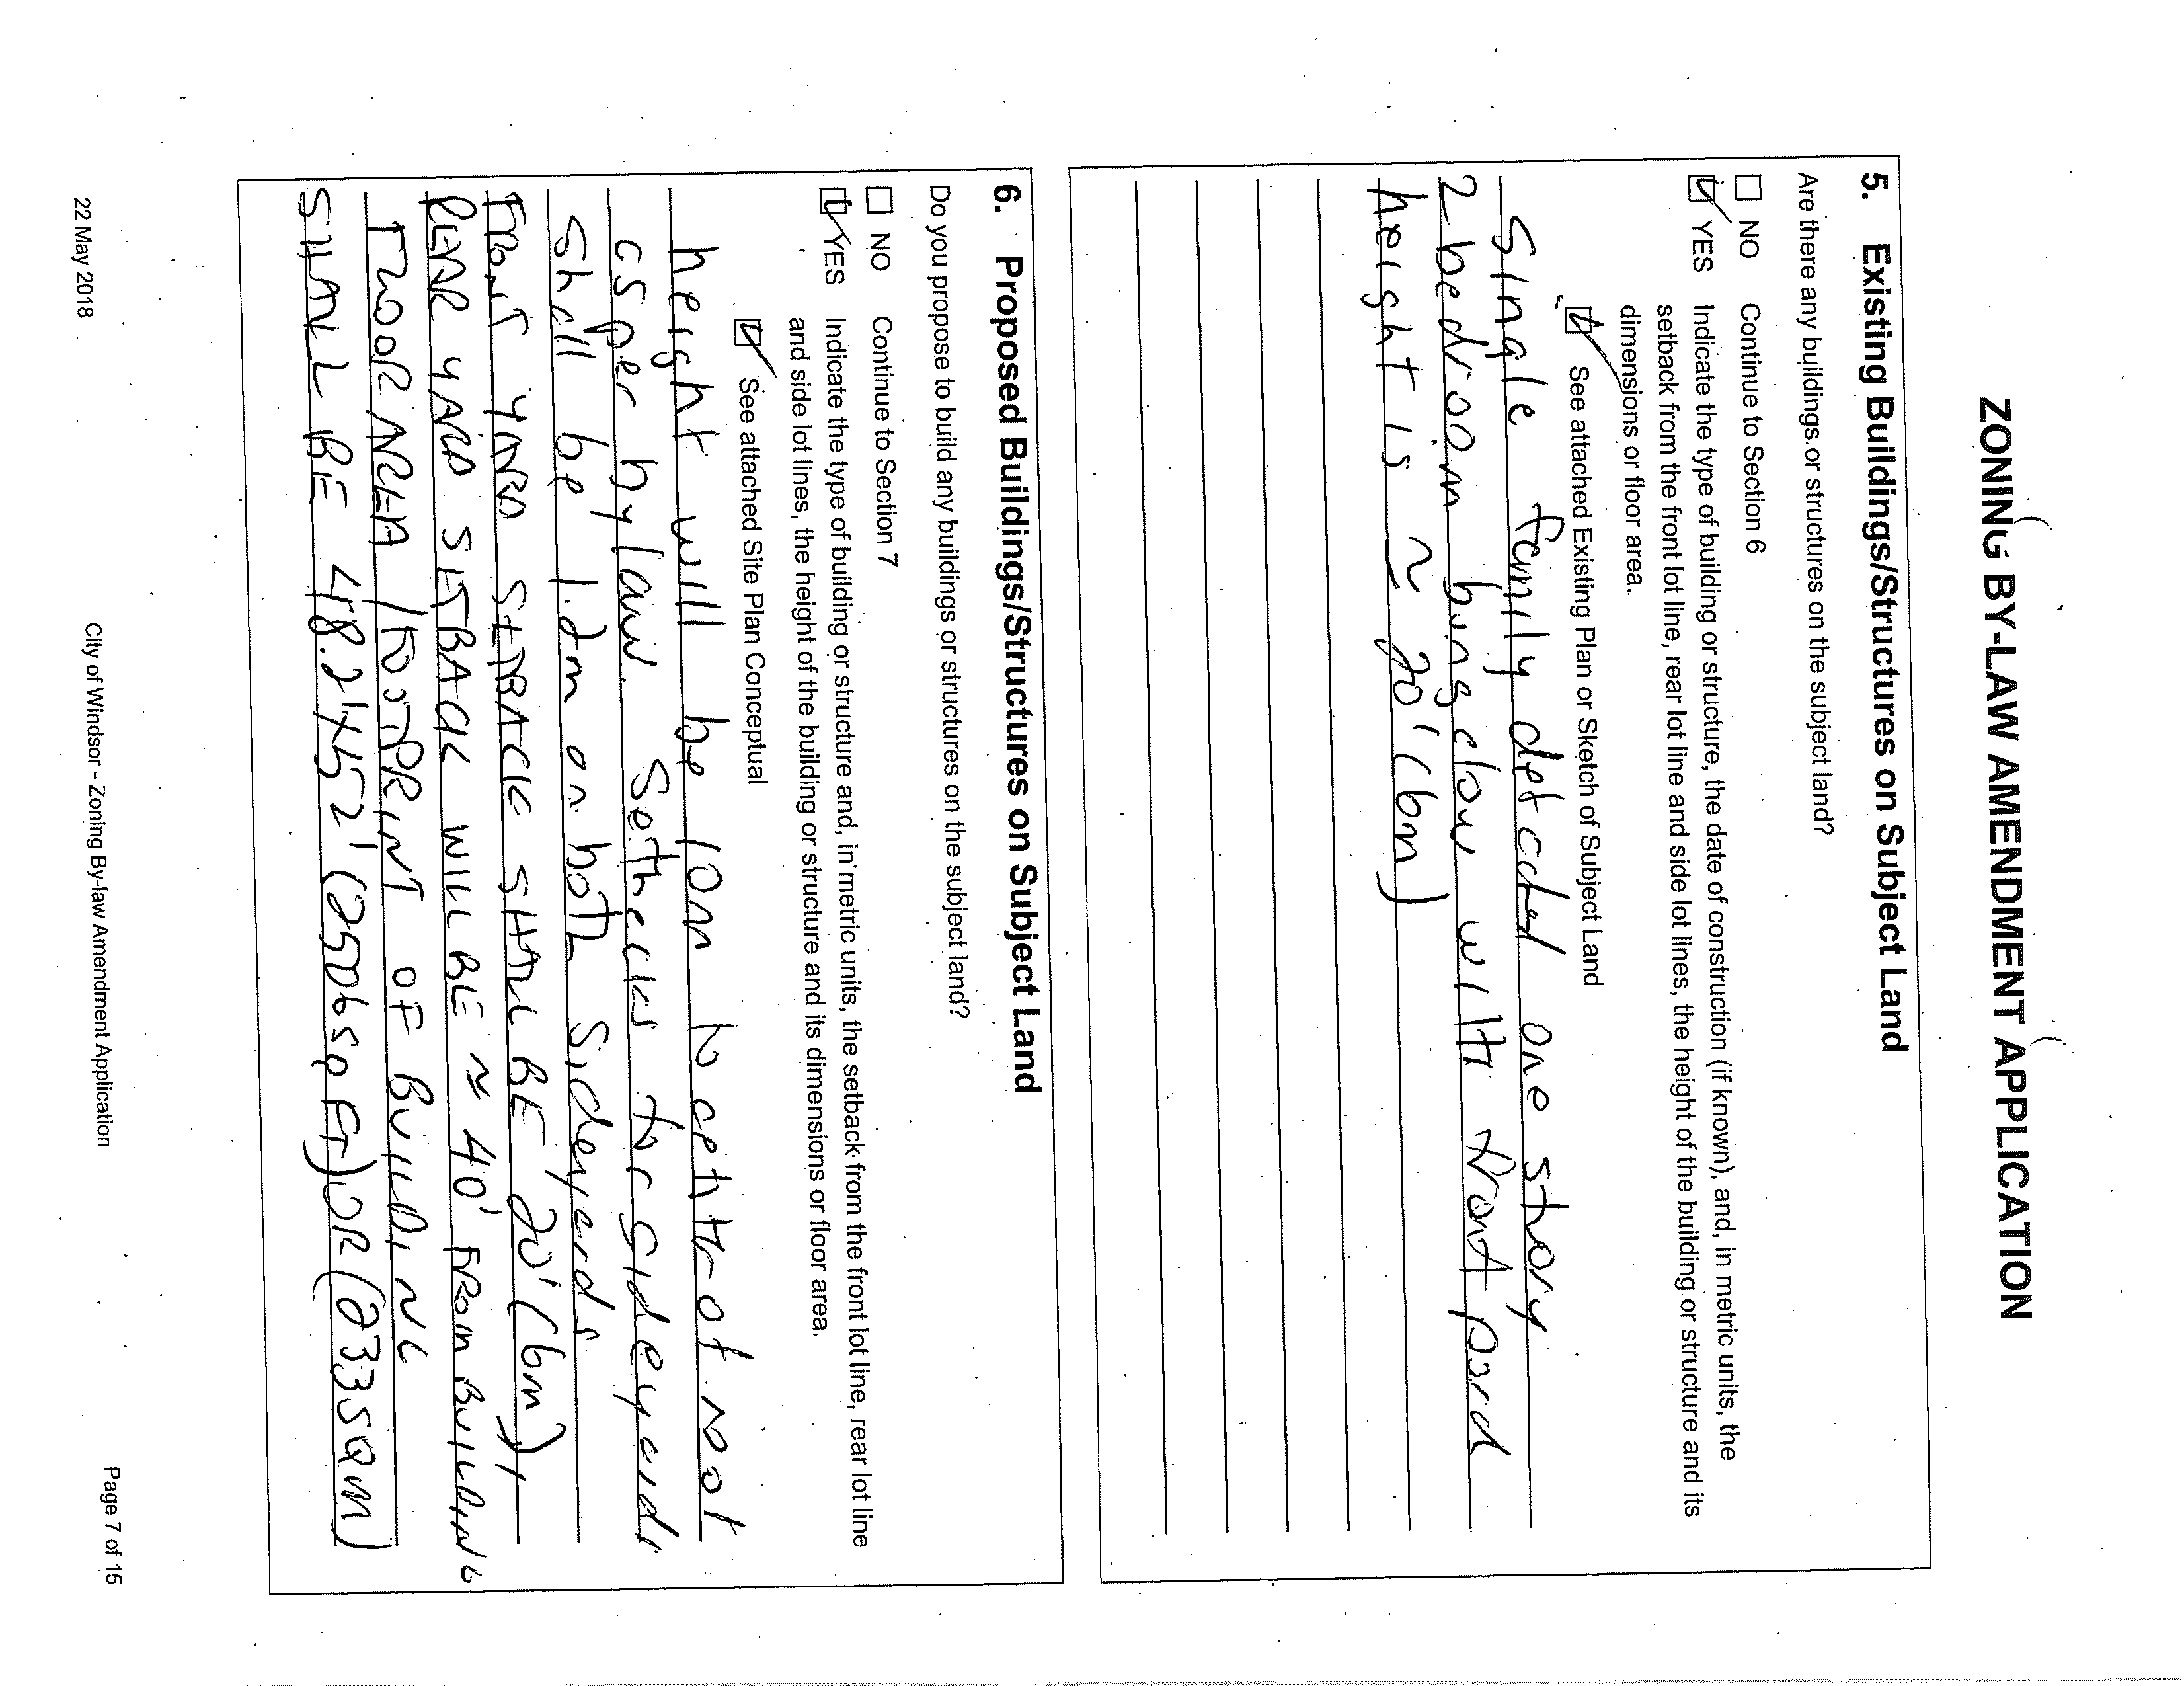 ZONING BY-LAW AMENDMENT APPLICATION
5. Existing Buildings/Structures on Subject Land
Are there any buildings or structures on the subject land?
☐ NO Continue to Section 6
☑ YES Indicate the type of building or structure, the date of construction (if known), and, in metric units, the
setback from the front lot line, rear lot line and side lot lines, the height of the building or structure and its
dimensions or floor area.
☑ See attached Existing Plan or Sketch of Subject Land
Single family detached one story
2 bedroom bungalow with front porch
height is ~ 20' (6m)
6. Proposed Buildings/Structures on Subject Land
Do you propose to build any buildings or structures on the subject land?
☐ NO Continue to Section 7
☑ YES Indicate the type of building or structure and, in metric units, the setback from the front lot line, rear lot line
and side lot lines, the height of the building or structure and its dimensions or floor area.
☑ See attached Site Plan Conceptual
height will be 10m to centre of roof
as per bylaw. Setbacks for sideyards
shall be 1.2m on both sideyards.
FRONT YARD SETBACK SHALL BE 20' (6m),
REAR YARD SETBACK WILL BE ~ 40' FROM BUILDING
FLOOR AREA / FOOTPRINT OF BUILDING
SHALL BE 48.2'X52' (2506SQFT) OR (233SQM)
22 May 2018 City of Windsor - Zoning By-law Amendment Application Page 7 of 15